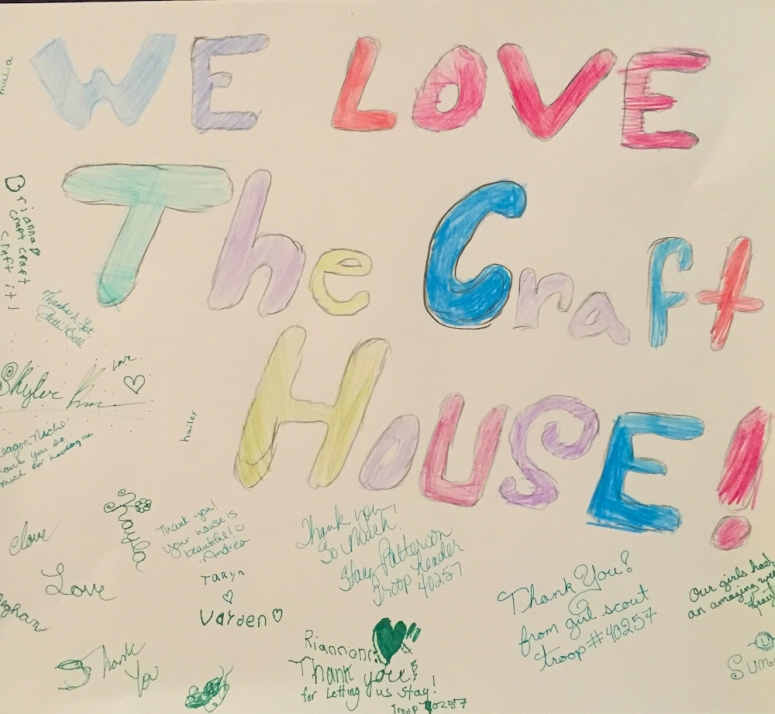 WE LOVE
The Craft
HOUSE!
Brianna
craft craft
craft it!
Thank You
love
Skyler
hailey
thank you so
much for
Kayla
Thank you!
your house is
beautiful!
-Andrea
Taryn
Varden
Thank you
So Much!
Stacy Patterson
Troop Leader
40257
Thank You!
from girl scout
troop #40257
Our girls had
an amazing
love
Love
Meghan
Thank
You
Riannon
Thank you!
for Letting us stay!
Troop 40257